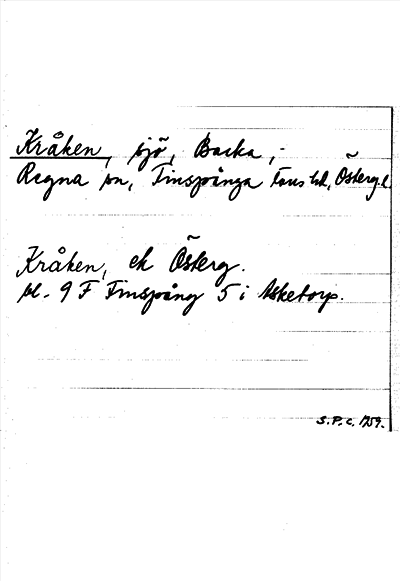 Kråken, sjö, Backa,-
Regna sn, Finspånga läns hd, Österg.l.
Kråken, ek Österg.
bl. 9 F Finspång 5 i Asketorp.
S.P.C. 1959.